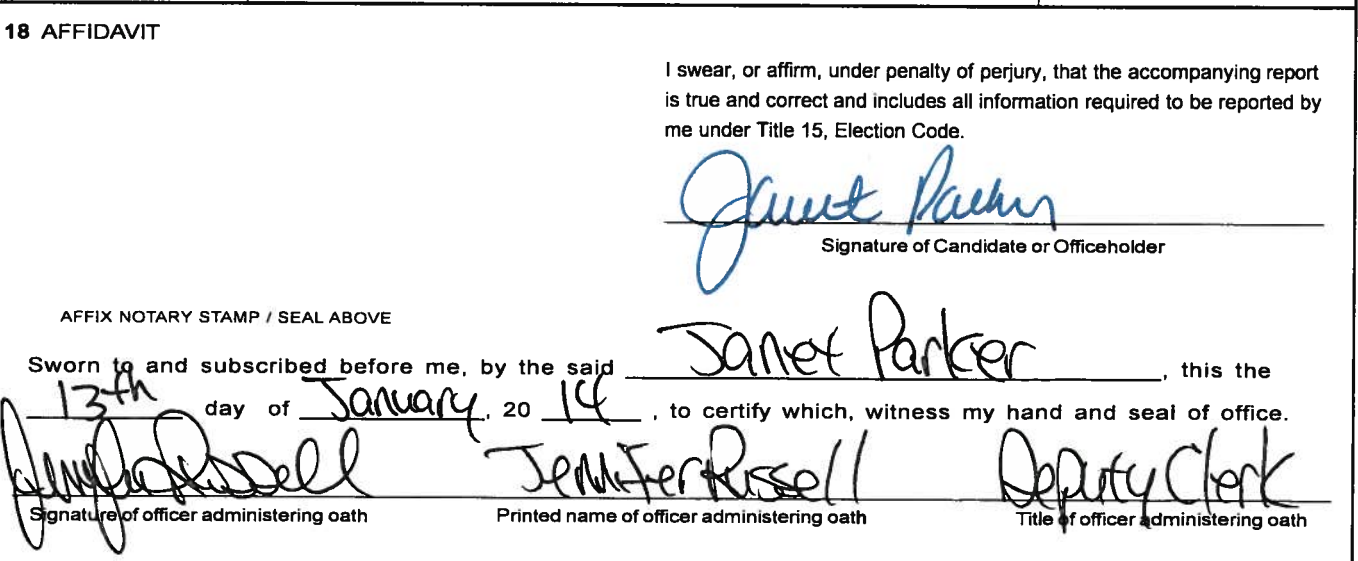 18 AFFIDAVIT
I swear, or affirm, under penalty of perjury, that the accompanying report
is true and correct and includes all information required to be reported by
me under Title 15, Election Code.
Janet Parker
Signature of Candidate or Officeholder
AFFIX NOTARY STAMP / SEAL ABOVE
Sworn to and subscribed before me, by the said Janet Parker, this the
13th day of January, 20 14, to certify which, witness my hand and seal of office.
Jennifer Russell Jennifer Russell Deputy Clerk
Signature of officer administering oath Printed name of officer administering oath Title of officer administering oath